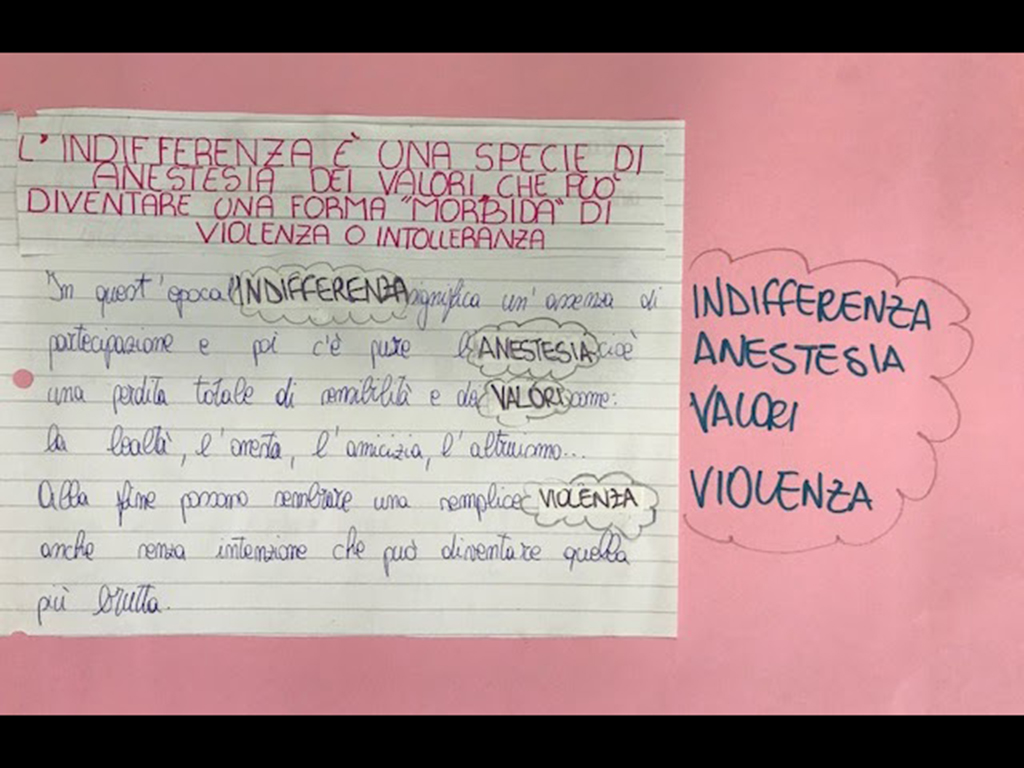 L'INDIFFERENZA È UNA SPECIE DI
ANESTESIA DEI VALORI, CHE PUO'
DIVENTARE UNA FORMA "MORBIDA" DI
VIOLENZA O INTOLLERANZA
In quest'epoca l'INDIFFERENZA significa un'assenza di
partecipazione e poi c'è pure l'ANESTESIA cioè
una perdita totale di sensibilità e dei VALORI come:
la lealtà, l'onestà, l'amicizia, l'altruismo...
Alla fine possono sembrare una semplice VIOLENZA
anche senza intenzione che può diventare quella
più brutta.
INDIFFERENZA
ANESTESIA
VALORI
VIOLENZA